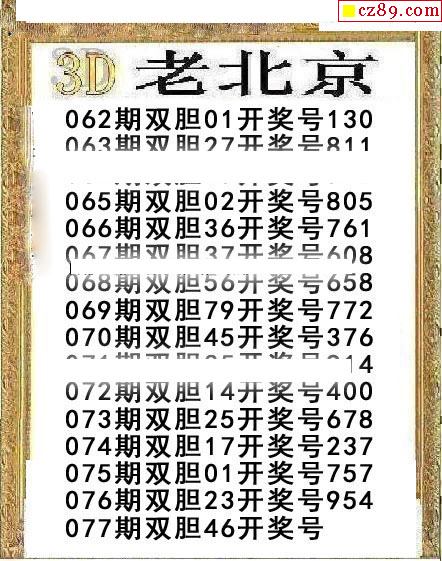 cz89.com
3D 老北京
062期双胆01开奖号130
063期双胆27开奖号811
065期双胆02开奖号805
066期双胆36开奖号761
067期双胆37开奖号608
068期双胆56开奖号658
069期双胆79开奖号772
070期双胆45开奖号376
期双胆 开奖号
072期双胆14开奖号400
073期双胆25开奖号678
074期双胆17开奖号237
075期双胆01开奖号757
076期双胆23开奖号954
077期双胆46开奖号